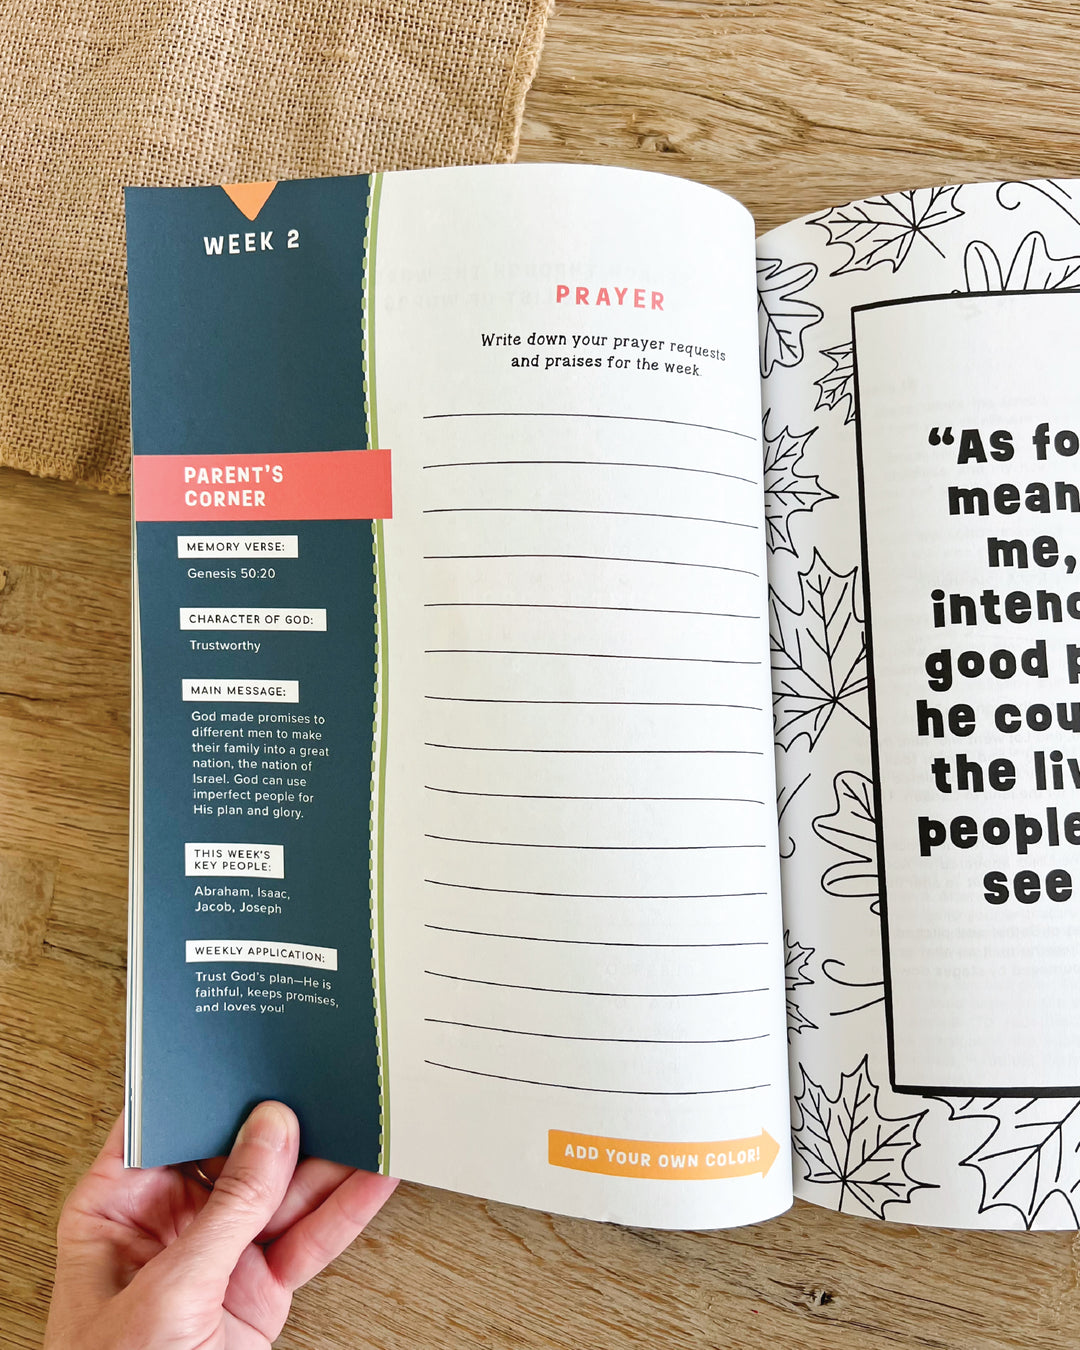 WEEK 2
PARENT'S
CORNER
MEMORY VERSE:
Genesis 50:20
CHARACTER OF GOD:
Trustworthy
MAIN MESSAGE:
God made promises to
different men to make
their family into a great
nation, the nation of
Israel. God can use
imperfect people for
His plan and glory.
THIS WEEK'S
KEY PEOPLE:
Abraham, Isaac,
Jacob, Joseph
WEEKLY APPLICATION:
Trust God's plan—He is
faithful, keeps promises,
and loves you!
PRAYER
Write down your prayer requests
and praises for the week.
ADD YOUR OWN COLOR!
“As fo
mean
me,
intend
good p
he cou
the liv
people
see